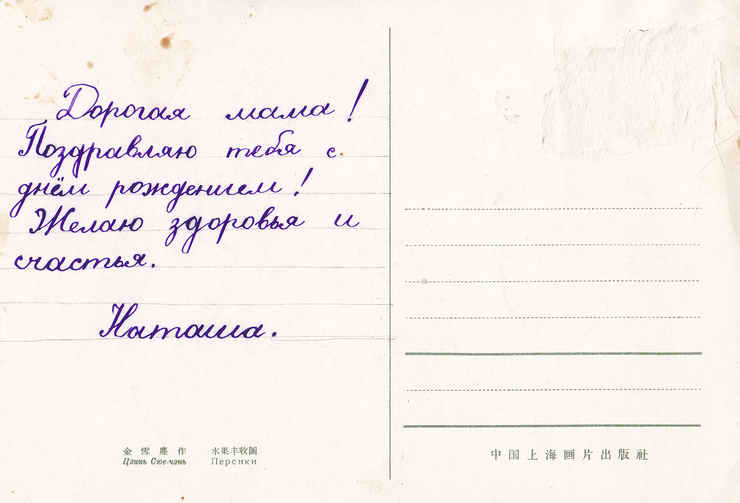 Дорогая мама!
Поздравляю тебя с
днём рождением!
Желаю здоровья и
счастья.
Наташа.
金雪塵作 水果丰收圖
Цзинь Сюе-чэнь Персики
中国上海画片出版社